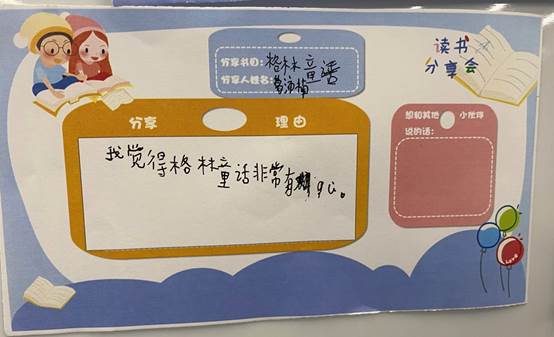 读书
分享会
分享书目：格林童话
分享人姓名：
分享 理由
我觉得格林童话非常有qu。
想和其他小伙伴
说的话：
Love